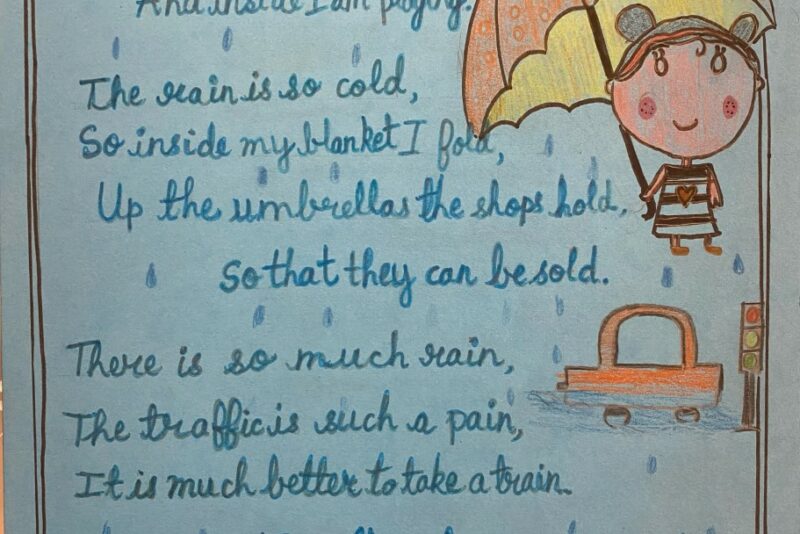 And inside I am praying.
The rain is so cold,
So inside my blanket I fold,
Up the umbrellas the shops hold,
So that they can be sold.
There is so much rain,
The traffic is such a pain,
It is much better to take a train.